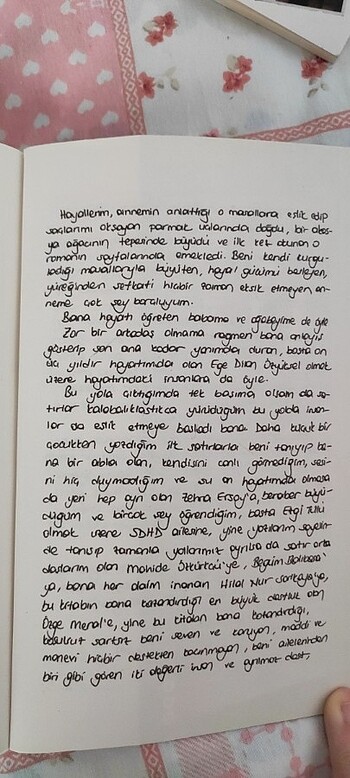 Hayallerim, annemin anlattığı o masallara eşlik edip
saçlarımı okşayan parmak uçlarında doğdu, bir akas-
ya ağacının tepesinde büyüdü ve ilk kez okunan o
romanın sayfalarında emekledi. Beni kendi kurgu-
ladığı masallarıyla büyüten, hayal gücümü besleyen,
yüreğinden şefkati hiçbir zaman eksik etmeyen an-
neme çok şey borçluyum.
Bana hayatı öğreten babama ve ağabeyime de öyle
Zor bir arkadaş olmama rağmen bana anlayış
gösterip son ana kadar yanımda duran, başta on
üç yıldır hayatımda olan Ege Dilan Özyüksel olmak
üzere hayatımdaki insanlara da öyle.
Bu yola çıktığımda tek başıma olsam da sa-
tırlar kalabalıklaştıkça yürüdüğüm bu yolda insan-
lar da eşlik etmeye başladı bana. Daha küçük bir
çocukken yazdığım ilk satırlarla beni tanıyıp ba-
na bir abla olan, kendisini canlı görmediğim, sesi-
ni hiç duymadığım ve şu an hayatımda olmasa
da yeri hep ayrı olan Zehra Ersoy'a, beraber büyü-
düğüm ve birçok şey öğrendiğim, başta Ezgi
olmak üzere SDHD ailesine, yine yazılarım sayesin-
de tanışıp zamanla yollarımız ayrılsa da satır arka-
daşlarım olan Öztürk'e, Begüm
ya, bana her daim inanan Hilal Nur
bu kitabın bana kazandırdığı en büyük dostluk olan
Özge Meral'e, yine bu kitabın bana kazandırdığı,
koşulsuz şartsız beni seven ve koruyan, maddi ve
manevi hiçbir destekten kaçınmayan, beni ailelerinden
biri gibi gören iki değerli insan ve ayrılmaz dost,